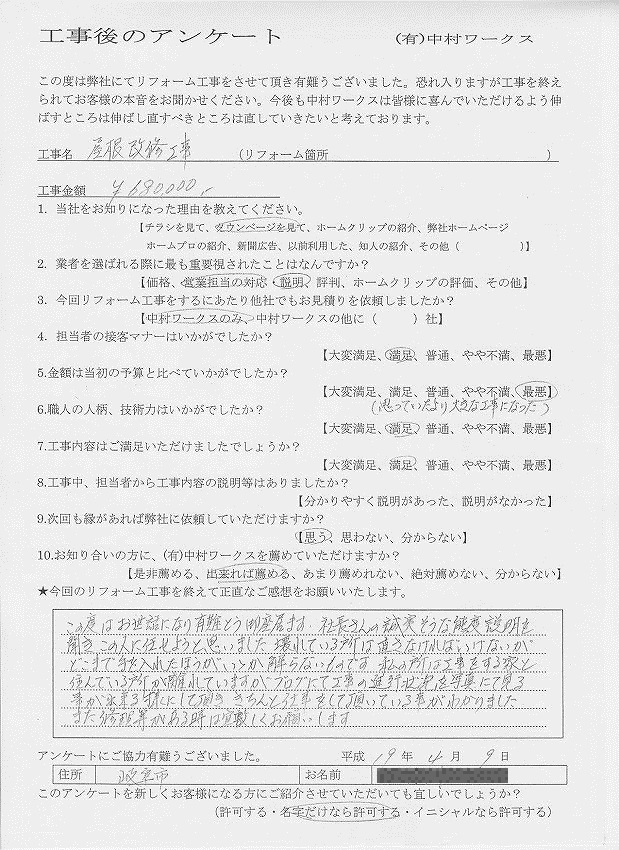 工事後のアンケート (有)中村ワークス
この度は弊社にてリフォーム工事をさせて頂き有難うございました。恐れ入りますが工事を終え
られてお客様の本音をお聞かせください。今後も中村ワークスは皆様に喜んでいただけるよう伸
ばすところは伸ばし直すべきところは直していきたいと考えております。
工事名 屋根改修工事 (リフォーム箇所 )
工事金額 ¥680,000,-
1. 当社をお知りになった理由を教えてください。
【チラシを見て、タウンページを見て、ホームクリップの紹介、弊社ホームページ
ホームプロの紹介、新聞広告、以前利用した、知人の紹介、その他( )】
2. 業者を選ばれる際に最も重要視されたことはなんですか?
【価格、営業担当の対応・説明、評判、ホームクリップの評価、その他】
3. 今回リフォーム工事をするにあたり他社でもお見積りを依頼しましたか?
【中村ワークスのみ、中村ワークスの他に( )社】
4. 担当者の接客マナーはいかがでしたか?
【大変満足、満足、普通、やや不満、最悪】
5.金額は当初の予算と比べていかがでしたか?
【大変満足、満足、普通、やや不満、最悪】
(思っていたより大きな工事になった)
6.職人の人柄、技術力はいかがでしたか?
【大変満足、満足、普通、やや不満、最悪】
7.工事内容はご満足いただけましたでしょうか?
【大変満足、満足、普通、やや不満、最悪】
8.工事中、担当者から工事内容の説明等はありましたか?
【分かりやすく説明があった、説明がなかった】
9.次回も縁があれば弊社に依頼していただけますか?
【思う、思わない、分からない】
10.お知り合いの方に、(有)中村ワークスを薦めていただけますか?
【是非薦める、出来れば薦める、あまり薦めれない、絶対薦めない、分からない】
★今回のリフォーム工事を終えて正直なご感想をお願いいたします。
この度はお世話になり有難とう御座居ます。社長さんの誠実そうな態度説明を
聞き この人に任せようと思いました 壊れている所は直さなければいけないが
どこまで手を入れたほうがいいか解らないものです 私の所は工事をする家と
住んでいる所が離れていますがブログにて工事の進行状況を写真にて見る
事が出来る様にして頂き きちんと仕事をして頂いている事がわかりました
また修理等がある時は宜敷しくお願いします
アンケートにご協力有難うございました。 平成 19 年 4 月 9 日
住所 市 お名前
このアンケートを新しくお客様になる方にご紹介させていただいても宜しいでしょうか?
(許可する・名字だけなら許可する・イニシャルなら許可する)